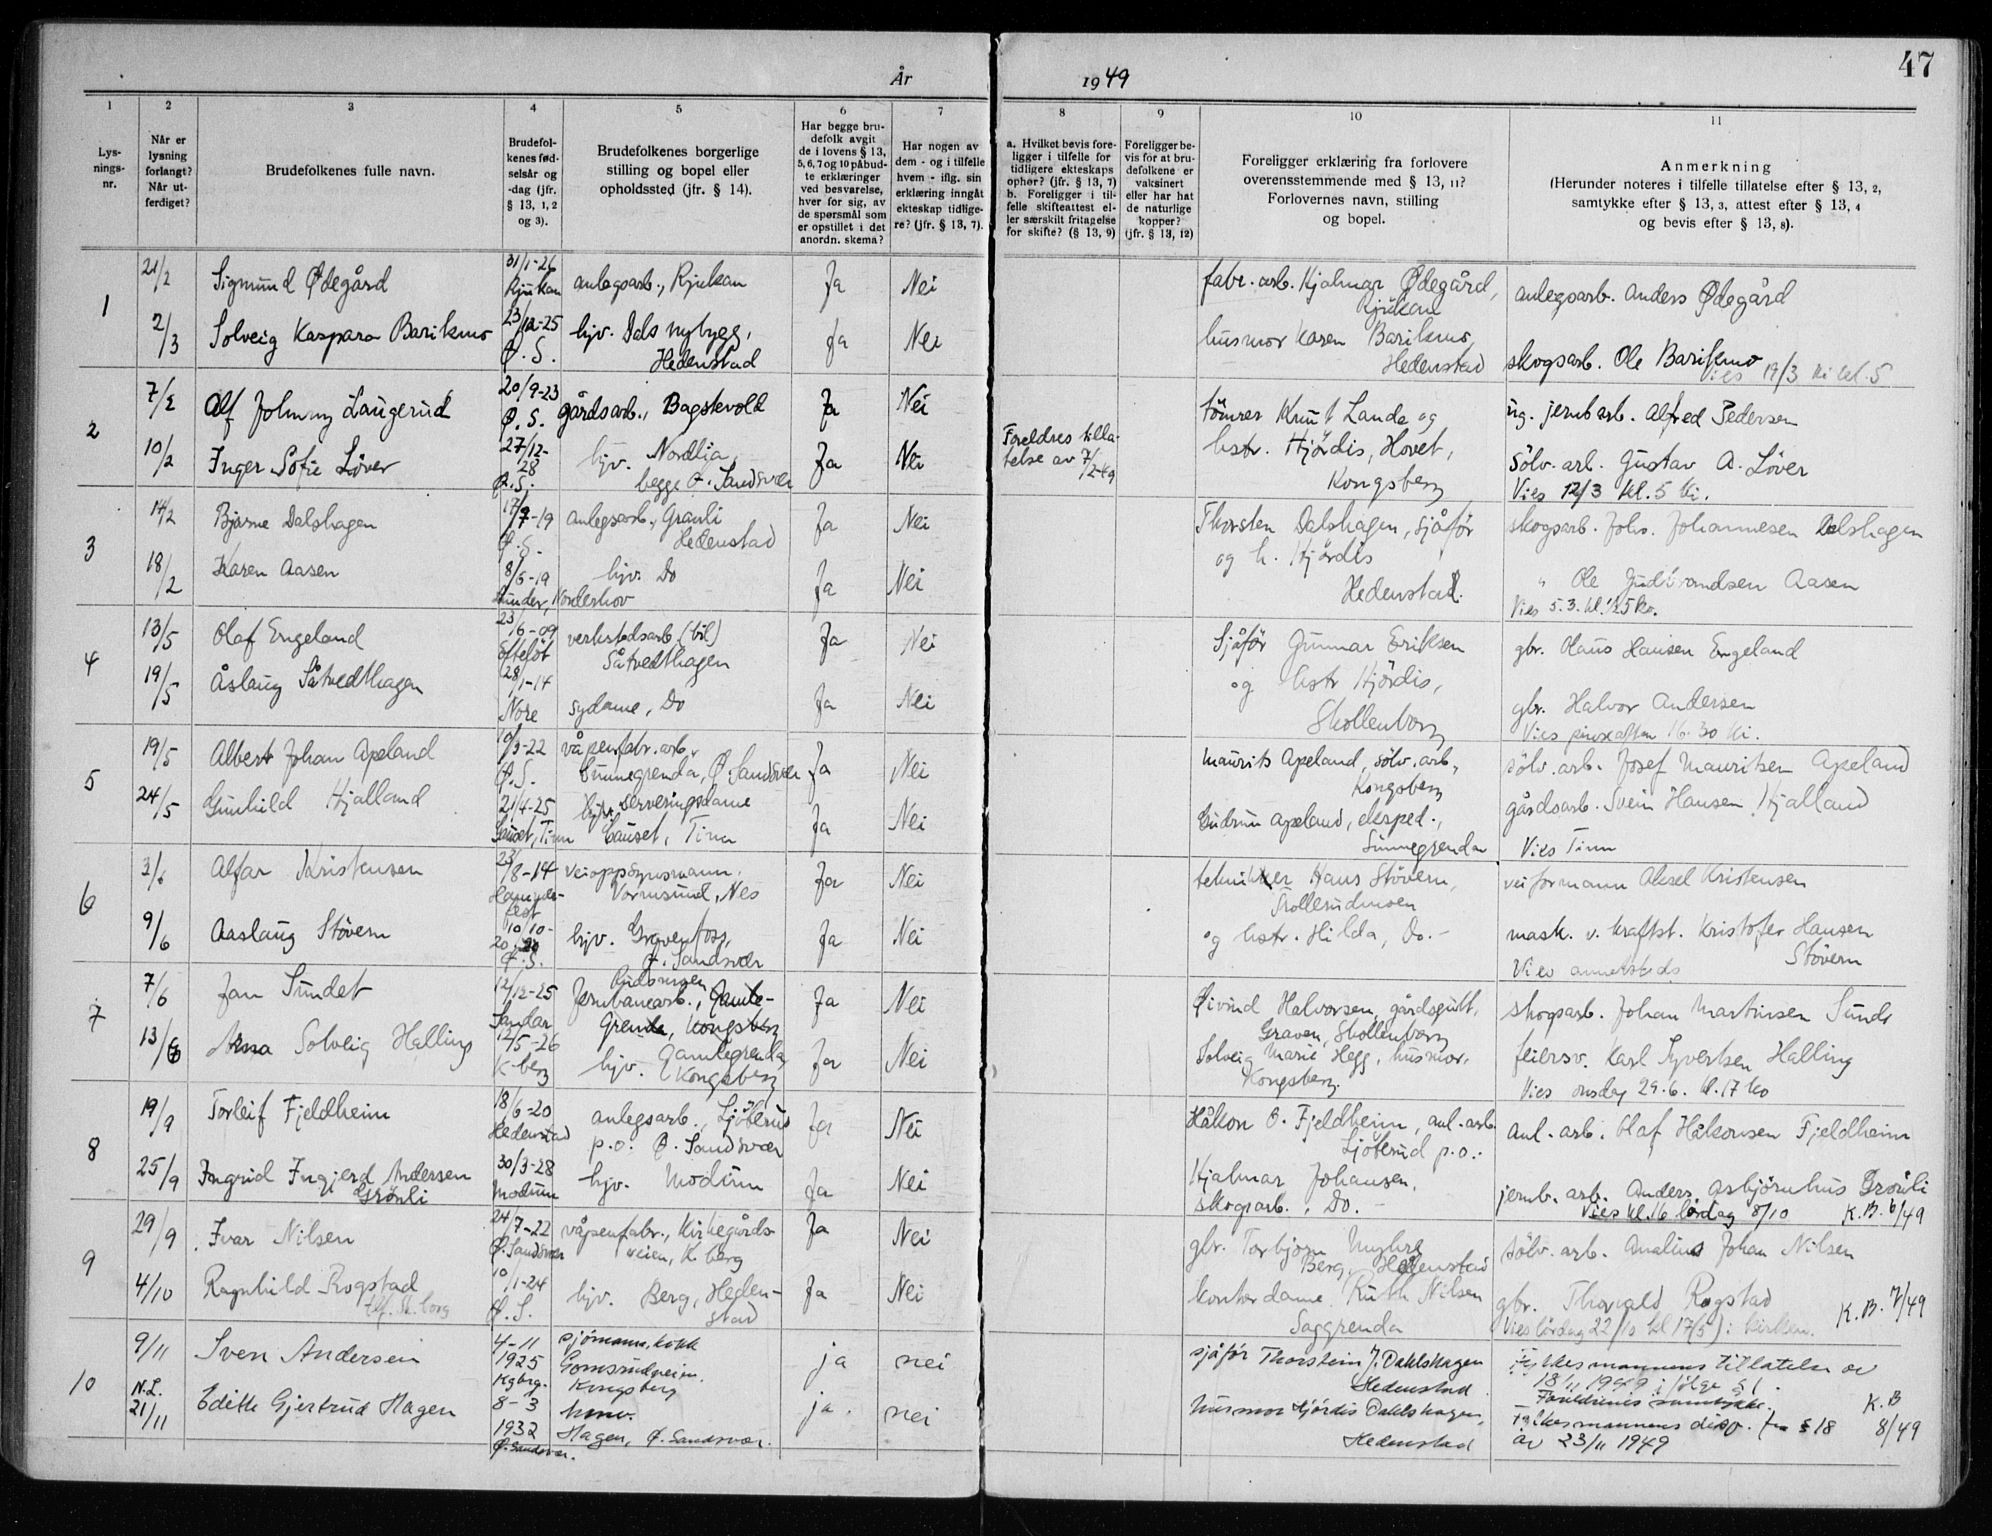 47
År 1949
1
2
3
4
5
6
7
8
9
10
11
Lys-
nings-
nr.
Når er
lysning
forlangt?
Når ut-
ferdiget?
Brudefolkenes fulle navn.
Brudefol-
kenes fød-
selsår og
-dag (jfr.
§ 13, 1, 2
og 3).
Brudefolkenes borgerlige
stilling og bopel eller
opholdssted (jfr. § 14).
Har begge bru-
defolk avgit
de i lovens § 13,
5, 6, 7 og 10 påbud-
te erklæringer
ved besvarelse,
hver for sig, av
de spørsmål som
er opstillet i det
anordn. skema?
Har nogen av
dem - og i tilfelle
hvem - iflg. sin
erklæring inngåt
ekteskap tidlige-
re? (jfr. § 13, 7).
a. Hvilket bevis fore-
ligger i tilfelle for
tidligere ekteskaps
ophør? (jfr. § 13, 7)
b. Foreligger i til-
felle skifteattest el-
ler særskilt fritagelse
for skifte? (§ 13, 9)
Foreligger be-
vis for at bru-
defolkene er
vaksinert
eller har hat
de naturlige
kopper?
(jfr. § 13, 12)
Foreligger erklæring fra forlovere
overensstemmende med § 13, 11?
Forlovernes navn, stilling
og bopel.
Anmerkning
(Herunder noteres i tilfelle tillatelse efter § 13, 2,
samtykke efter § 13, 3, attest efter § 13, 4
og bevis efter § 13, 8).
1
21/2
Sigmund Ødegård
31/1-26
Rjukan
anlegsarb., Rjukan
Ja
Nei
fabr. arb. Hjalmar Ødegård,
Rjukan
anlegsarb. Anders Ødegård
2/3
Solveig Kaspara Barikmo
23/12-25
Ø. S.
hjv. Dals nybygg,
Hedenstad
Ja
Nei
husmor Karen Barikmo
Hedenstad
skogsarb. Ole Barikmo
Vies 19/3 ki kl. 5
2
7/2
Alf Johnny Laugerud
20/9-23
Ø. S.
gårdsarb., Bagstevold
Ja
Nei
tömrer Knut Lande og
ug. jernb arb. Alfred Pedersen
10/2
Inger Sofie Löver
27/12-
28
Ø. S.
hjv. Nordlia,
begge Ø. Sandsvær
Ja
Nei
Foreldres tilla-
telse av 7/2-49
hstr. Hjördis, Hovet,
Kongsberg
Sölv. arb. Gustav A. Löver
Vies 12/3 kl. 5 ki.
3
14/2
Bjarne Dalshagen
17/7-19
Ø. S.
anlegsarb., Granli
Hedenstad
Ja
Nei
Thorsten Dalshagen, sjåför
og h. Hjördis
skogsarb. Johs. Johannesen Dalshagen
18/2
Karen Aasen
8/6-19
Lunder, Norderhov
hjv. Do
Ja
Nei
Hedenstad.
" Ole Gudbrandsen Aasen
Vies 5.3. kl.
4
13/5
Olaf Engeland
23/6-09
Efteløt
verkstedsarb. (bil)
Såtvedthagen
Ja
Nei
Sjåför Gunnar Eriksen
gbr. Olaus Hansen Engeland
19/5
Åslaug Såtvedthagen
28/1-14
Nore
sydame, Do
Ja
Nei
og hstr Hjördis,
Skollenborg
gbr. Halvor Andersen
Vies pinseaften 16.30 ki.
5
19/5
Albert Johan Apeland
19/3-22
Ø. S.
våpenfabr. arb.,
Summegrenda, Ø. Sandsvær
Ja
Nei
Maurits Apeland, sölv. arb,
Kongsberg
sölv. arb. Josef Mauritsen Apeland
24/5
Gunhild Hjalland
21/4-25
Gauset, Tinn
serveringsdame
Gauset, Tinn
Ja
Nei
Gudrun Apeland, eksped.,
Summegrenda
gårdsarb. Svein Hansen Hjalland
Vies Tinn
6
3/6
Alfar Kristensen
23/8-14
Hammer-
fest
veioppsynsmann,
Vormsund, Nes
Ja
Nei
tekniker Hans Stövern,
Skollerudmoen
veiformann Aksel Kristensen
9/6
Aaslaug Stövern
10/10-
20
Ø. S.
hjv. Gravenfoss,
Ø. Sandsvær
Ja
Nei
og hstr. Hilda, Do.-
mask. v. kraftst. Kristofer Hansen
Stövern
Vies annersteds
7
7/6
Jan Sundet
12/12-25
Sandar
Jernbanearb., Gamle-
Grenda, Kongsberg
Ja
Nei
Øivind Halvorsen, gårdsgutt,
Graven, Skollenborg
skogsarb. Johan Martinsen Sunde
13/6
Anna Solveig Halling
12/5-26
K-berg
hjv. Gamlegrenda,
Kongsberg
Ja
Nei
Solveig Marie Hegg, husmor,
Kongsberg.
feiersv. Karl Syvertsen Halling
Vies onsdag 29.6. kl. 17 ko
8
19/9
Torleif Fjeldheim
18/6-20
Hedenstad
anlegsarb., Ljöterud
p.o. Ø. Sandsvær
Ja
Nei
Håkon O. Fjeldheim, anl. arb.
Ljöterud p.o.
anl. arb. Olaf Håkonsen Fjeldheim
25/9
Ingrid Ingjerd Andersen
Grönli
30/3-28
Modum
hjv. Modum
Ja
Nei
Hjalmar Johansen,
skogsarb., Do.
jernb. arb. Anders Asbjörnhus Grönli
Vies kl. 16 lördag 8/10 K.B. 6/49
9
29/9
Ivar Nilsen
24/7-22
Ø. Sandsvær
våpenfabr., Kirkegårds-
veien, K.berg
Ja
Nei
gbr. Torbjörn Myhre
Berg, Hedenstad
sölv. arb. Analius Johan Nilsen
4/10
Ragnhild Rogstad
10/1-24
Ø. S.
hjv. Berg, Heden-
stad
Ja
Nei
kontordame Ruth Nilsen
Saggrenda
gbr. Thorvald Rogstad
Vies lördag 22/10 kl 17 i kirken. K.B. 7/49
10
9/11
Sven Andersen
4-11
1925
Kgbrg.
sjömann, kokk
Gomsrudveien,
Kongsberg
ja
nei
sjåför Thorstein J. Dahlshagen
Hedenstad
Fylkesmannens tillatelse av
18/11 1949 i følge § 1.
N.L.
21/11
Edith Gjertrud Hagen
8-3
1932
Ø. Sandsvær.
hmv.
Hagen, Ø. Sandsvær.
ja.
nei
husmor Hjördis Dahlshagen,
Hedenstad
Foreldrenes samtykke.
Fylkesmannens disp. fra § 18
av 23/11 1949
K.B
8/49